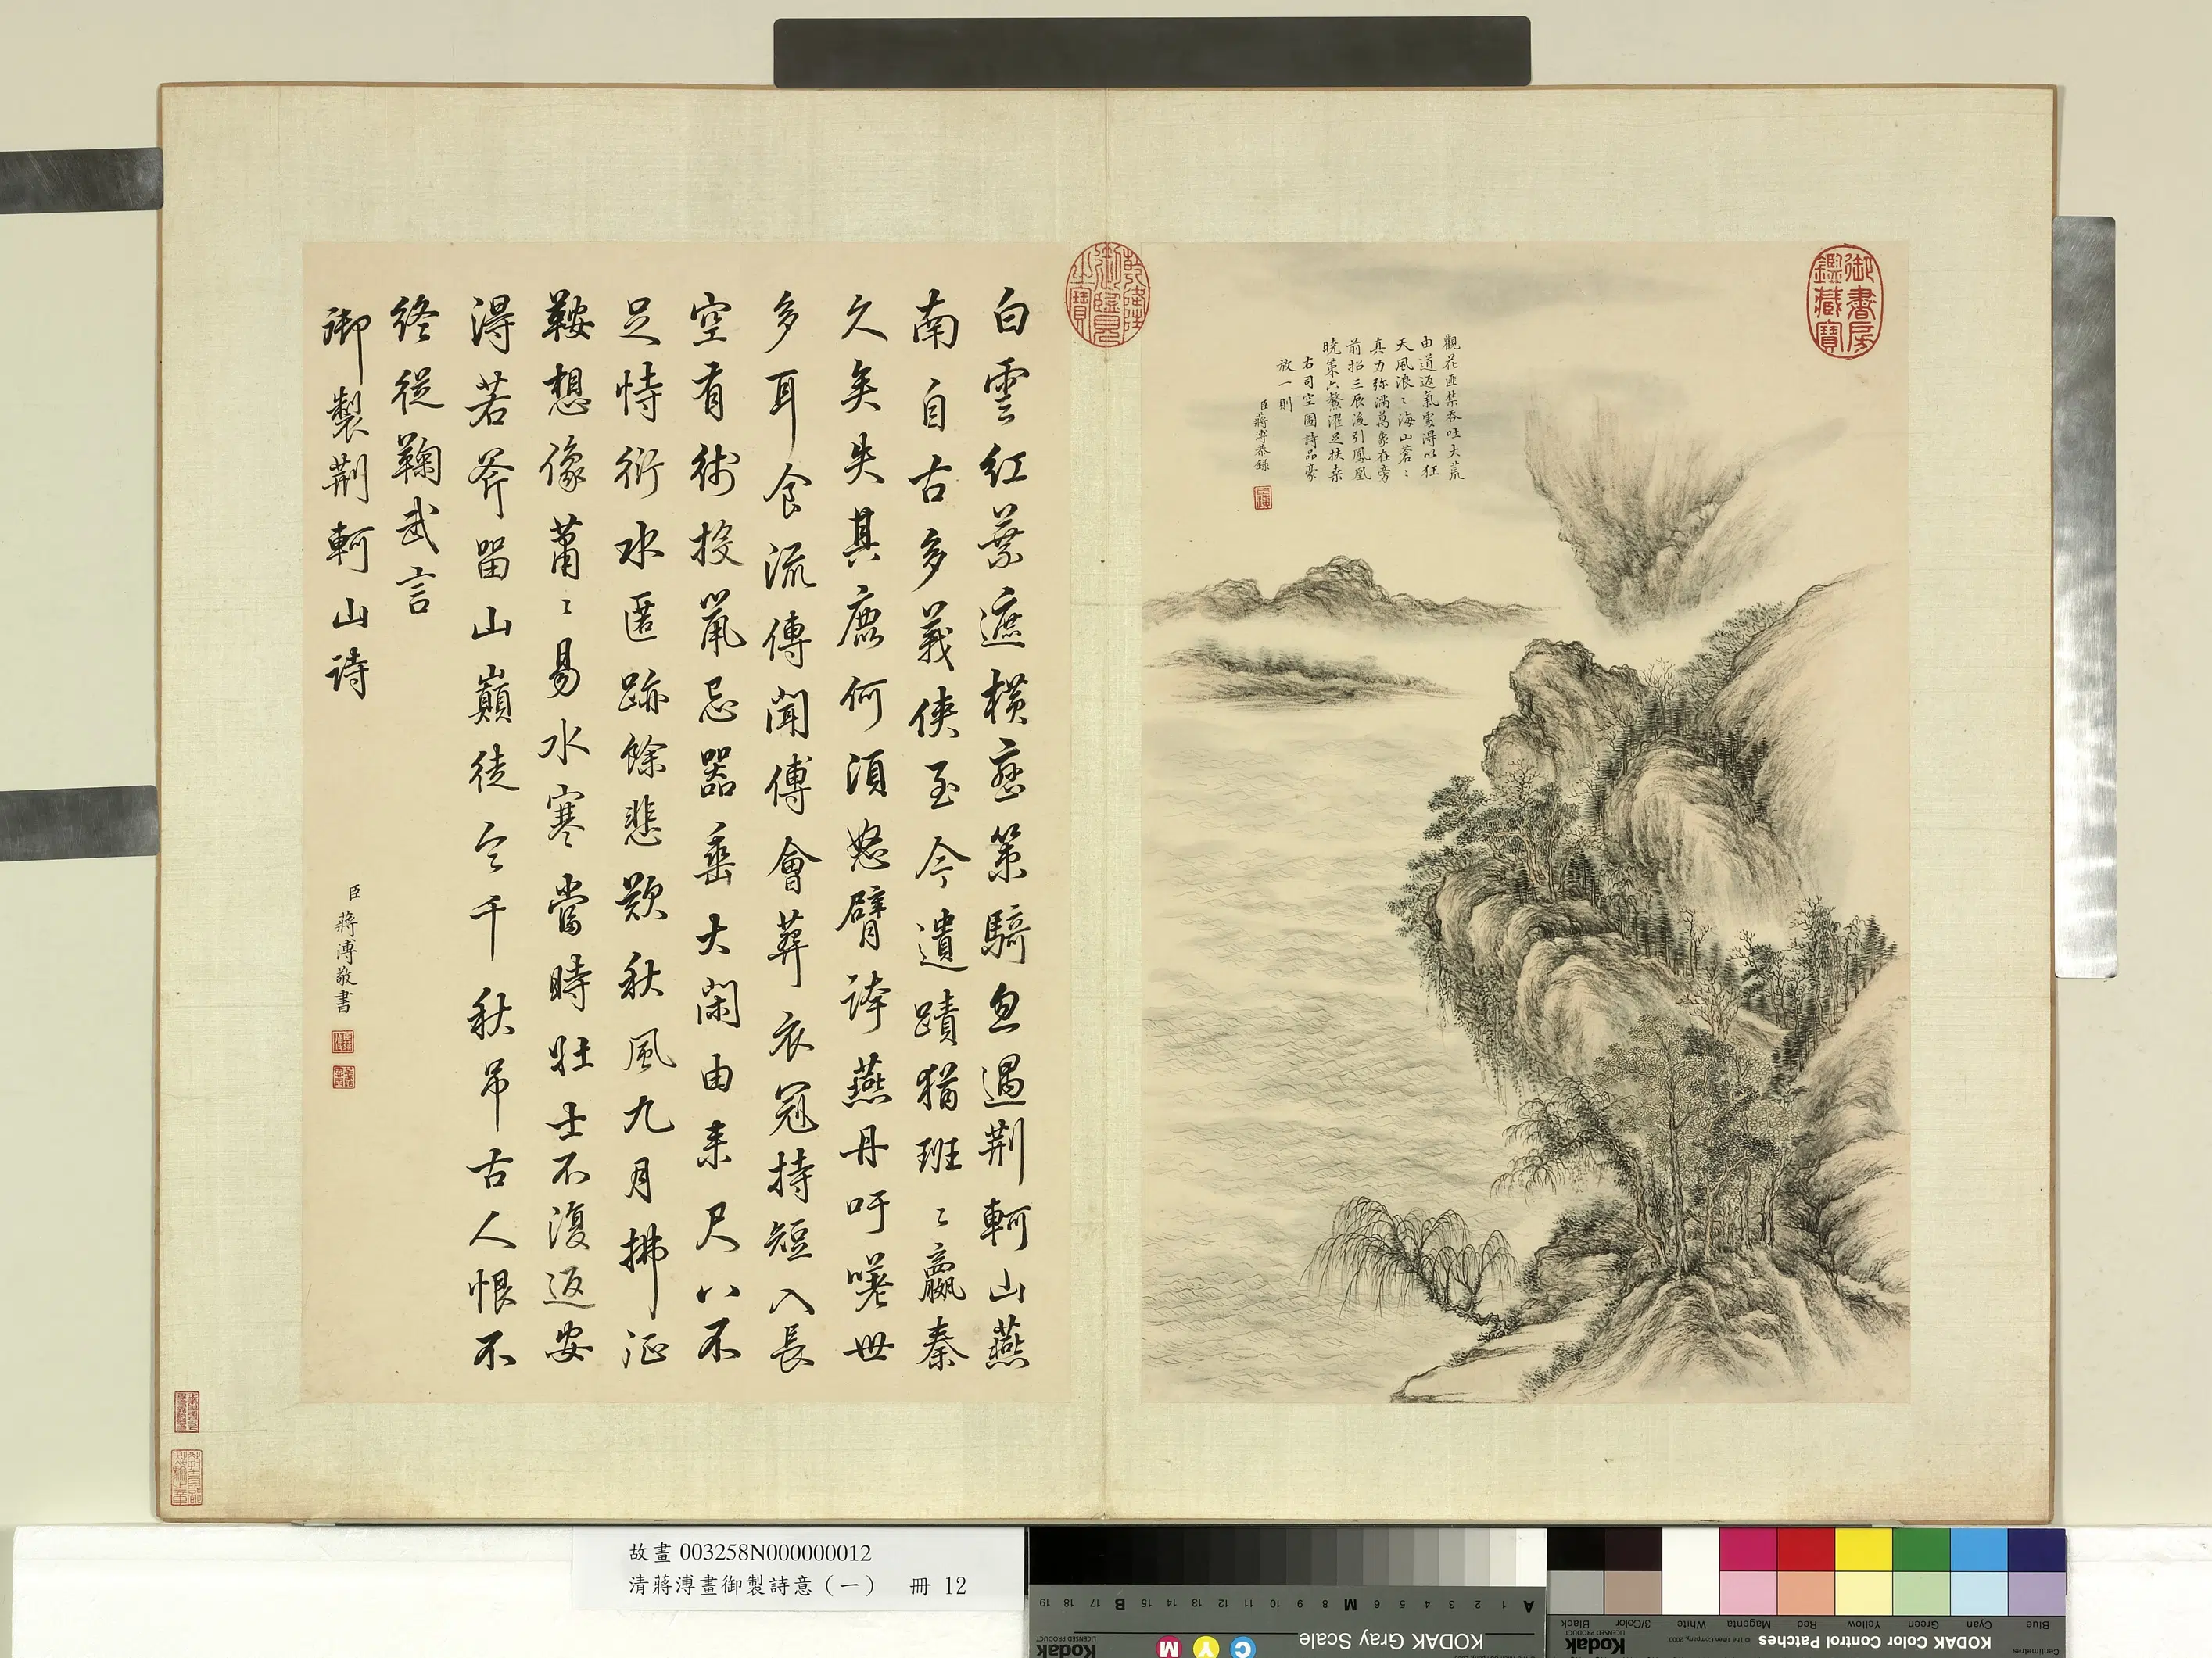 御書房鑑藏寶
觀花匪禁吞吐大荒
由道返氣處得以狂
天風浪〻海山蒼〻
真力弥滿萬象在旁
前招三辰後引鳳凰
曉策六鰲濯足扶桑
右司空圖詩品豪
放一則
臣蔣溥恭錄
乾隆御覽之寶
白雲紅葉遮橫 策騎忽過荊軻山燕
南自古多義俠至今遺蹟猶班〻嬴秦
久矣失其鹿何須怒臂誇燕丹吁嗟世
多耳食流傳聞傅會葬衣冠持短入長
空有術投鼠忌器垂大閑由来尺八不
足恃衍水匿跡餘悲歎秋風九月拂征
鞍想像蕭〻易水寒當時壯士不復返安
得若斧留山巔徒令千秋吊古人恨不
終從鞠武言
御製荊軻山詩
臣蔣溥敬書
故畫 003258N000000012
清蔣溥畫御製詩意（一） 冊 12
KODAK Gray Scale
Kodak
LICENSED PRODUCT
C Y M
A 1 2 3 4 5 6 M 8 9 10 11 12 13 14 15 B 17 18 19
KODAK Color Control Patches
Kodak
LICENSED PRODUCT
© The Tiffen Company, 2000
Centimetres
Blue Cyan Green Yellow Red Magenta White 3/Color Black